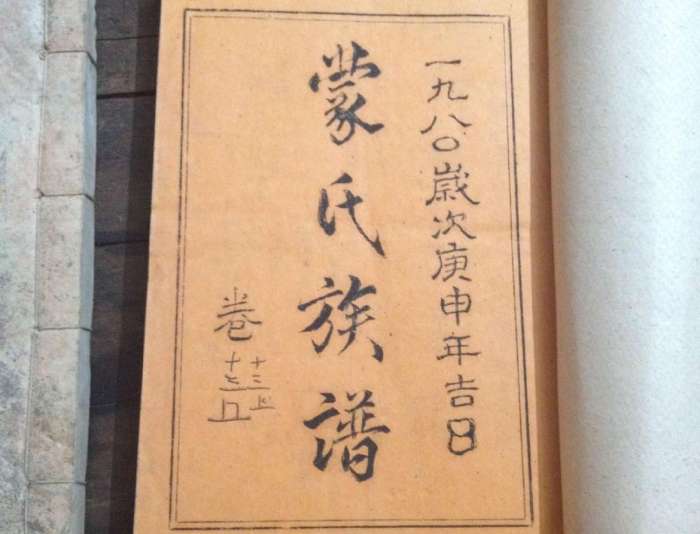 一九八〇歲次庚申年吉日
蒙氏族譜
卷
十三上